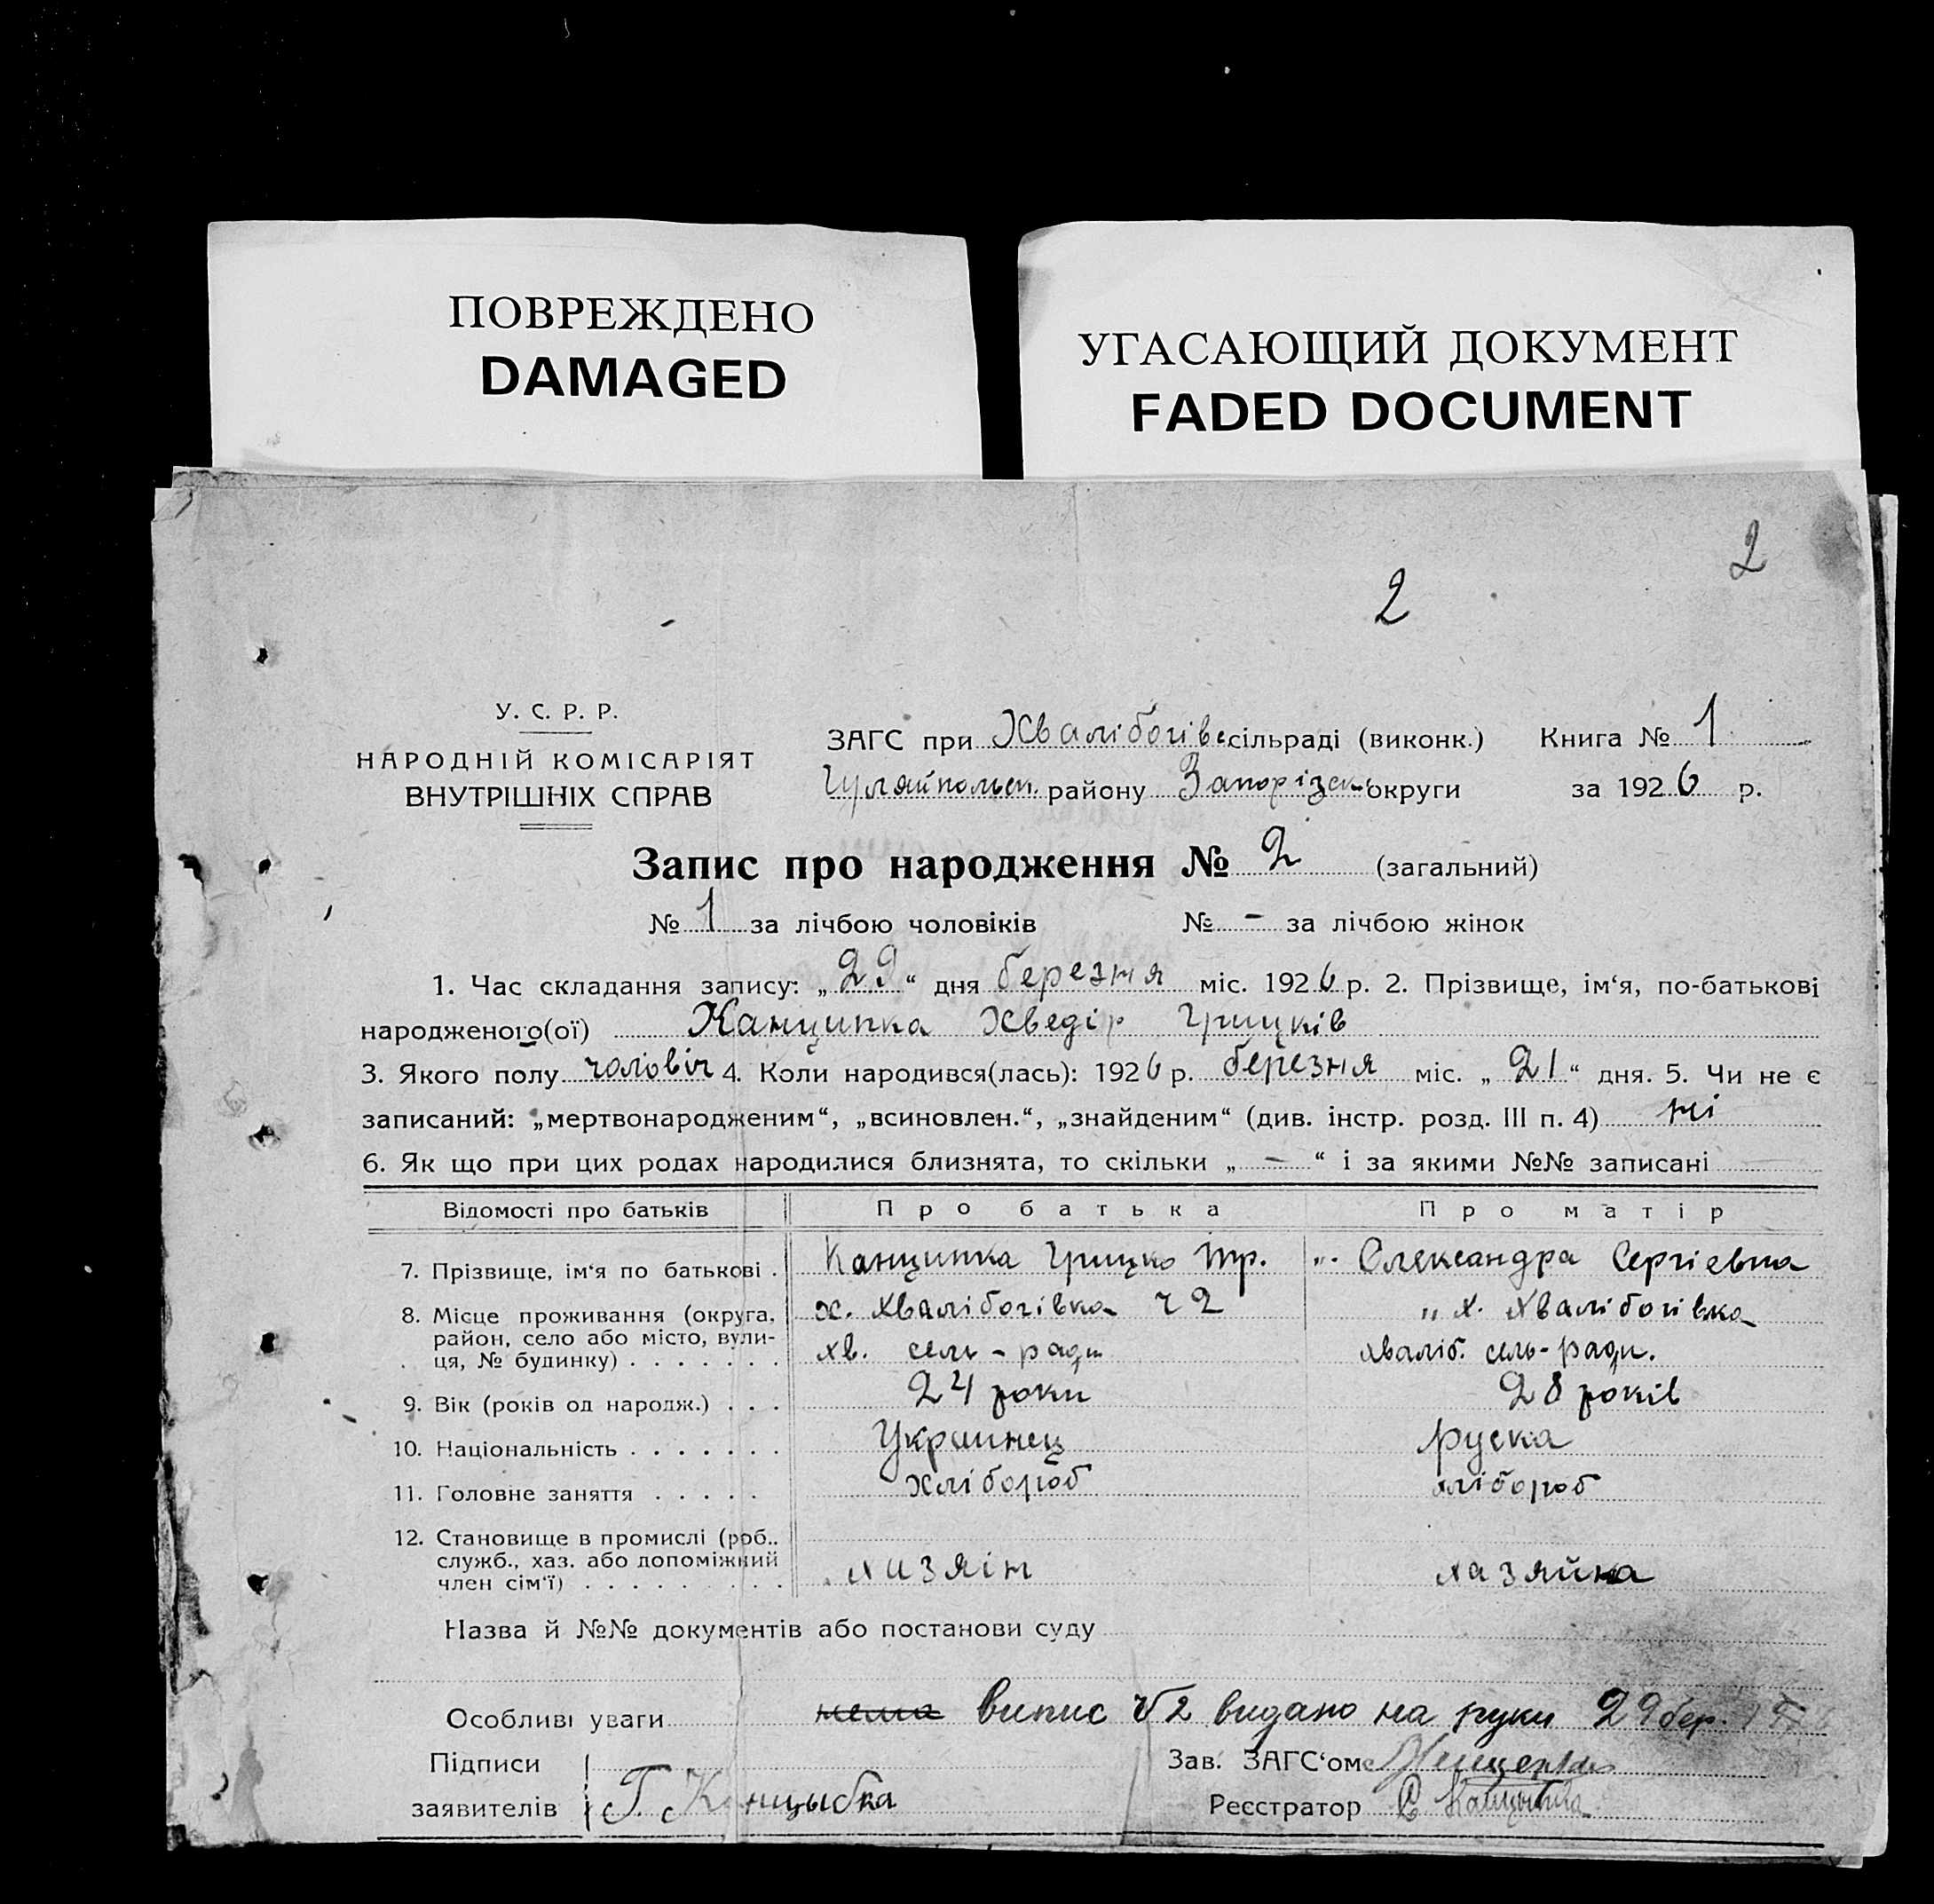 ПОВРЕЖДЕНО
DAMAGED
УГАСАЮЩИЙ ДОКУМЕНТ
FADED DOCUMENT
2
2
У. С. Р. Р.
НАРОДНІЙ КОМІСАРІЯТ
ВНУТРІШНІХ СПРАВ
ЗАГС при Хвалібогівс. сільраді (виконк.) Книга № 1
Гуляйпольськ. району Запорізськ. округи за 1926 р.
Запис про народження № 2 (загальний)
№ 1 за лічбою чоловіків № - за лічбою жінок
1. Час складання запису: „29“ дня березня міс. 1926 р. 2. Прізвище, ім‘я, по-батькові
народженого(ої) Канципка Хведір Грицків
3. Якого полу чоловіч 4. Коли народився(лась): 1926 р. березня міс. „21“ дня. 5. Чи не є
записаний: „мертвонародженим“, „всиновлен.“, „знайденим“ (див. інстр. розд. III п. 4) ні
6. Як що при цих родах народилися близнята, то скільки „-“ і за якими №№ записані
Відомості про батьків Про батька Про матір
7. Прізвище, ім‘я по батькові . Канципка Грицко Тр. „. Олександра Сергіевна
8. Місце проживання (округа, х. Хвалібогівка ч 2 „ х. Хвалібогівка
район, село або місто, вули-
ця, № будинку) . . . . . . . хв. сель-ради хваліб. сель-ради.
9. Вік (років од народж.) . . . 24 роки 28 років
10. Національність . . . . . . . Украинец руска
11. Головне заняття . . . . . хлібороб хлібороб
12. Становище в промислі (роб.,
служб., хаз. або допоміжний
член сім‘ї) . . . . . . . . . хазяін хазяйка
Назва й №№ документів або постанови суду
Особливі уваги нема випис ч 2 видано на руки 29 бер.
Підписи
Зав. ЗАГС‘ом
заявителів Г. Канцыбка
Реєстратор